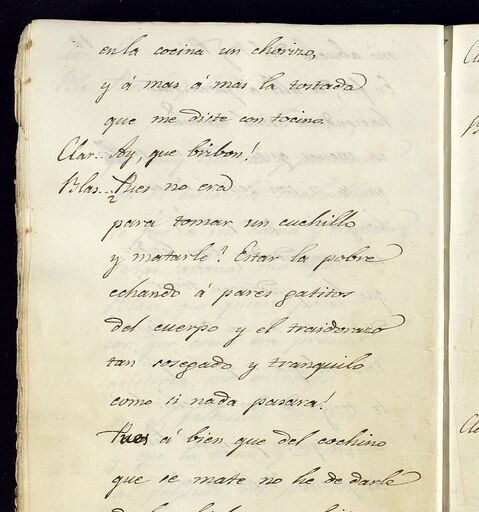 en la cocina un chorizo,
y á mas á mas la tostada
que me diste con tocino.
Clar.. Ay, que bribon!
Blas.. ¿Pues no era
para tomar un cuchillo
y matarle? Estar la pobre
echando á pares gatitos
del cuerpo y el traidorazo
tan sosegado y tranquilo
como si nada pasara!
Pues á bien que del cochino
que se mate no he de darle